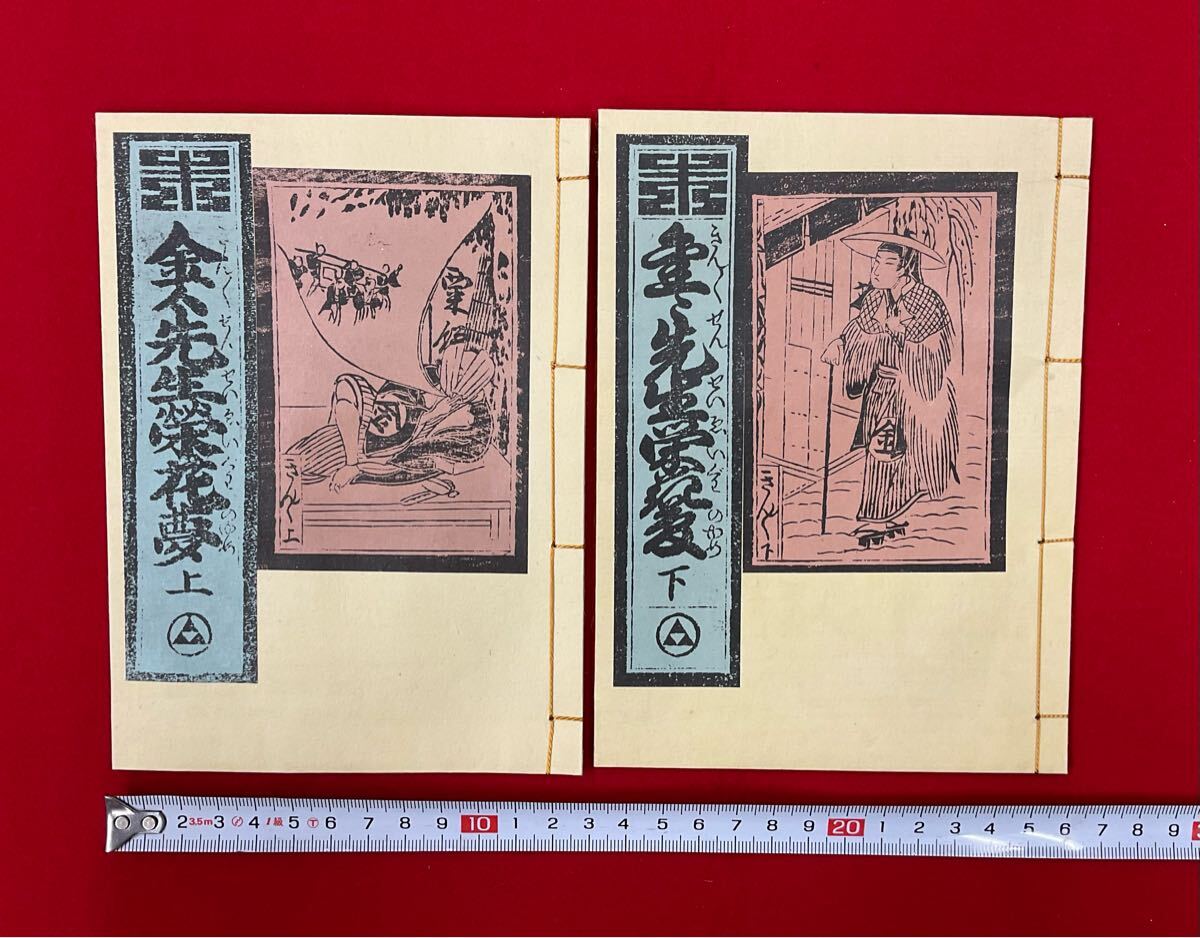 金々先生榮花夢 上
きんきんせんせいゑいぐわのゆめ
粟
金
きん〳〵 上
金々先生栄花夢 下
きん〳〵せんせいゑいぐわのゆめ
金
きん〳〵 下
2 3.5m 3 4 1級 5 6 7 8 9 10 1 2 3 4 5 6 7 8 9 20 1 2 3 4 5 6 7 8 9